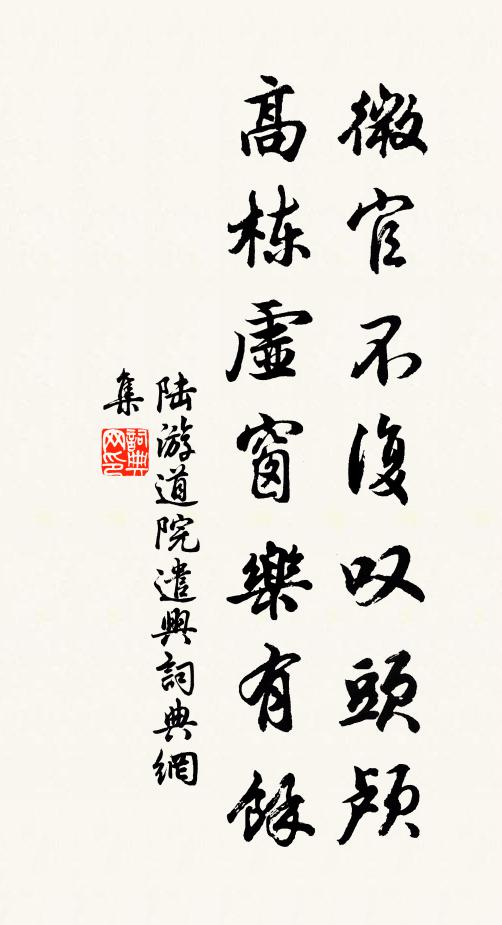 微官不復叹頭颅
高栋虛窗樂有餘
陆游道院遣興詞典網
集
詞典网印